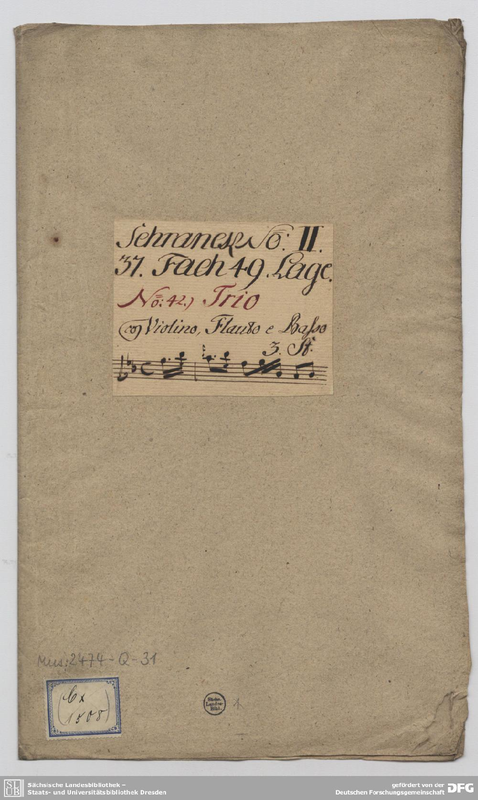 Schranck No: II.
37. Fach 49. Lage.
No: 42.) Trio
co Violino, Flauto e Basso
3. St.
Mus. 2474-Q-31
Cx
1808
Sächs.
Landes-
Bibl.
1
SLUB
Sächsische Landesbibliothek –
Staats- und Universitätsbibliothek Dresden
gefördert von der
Deutschen Forschungsgemeinschaft
DFG